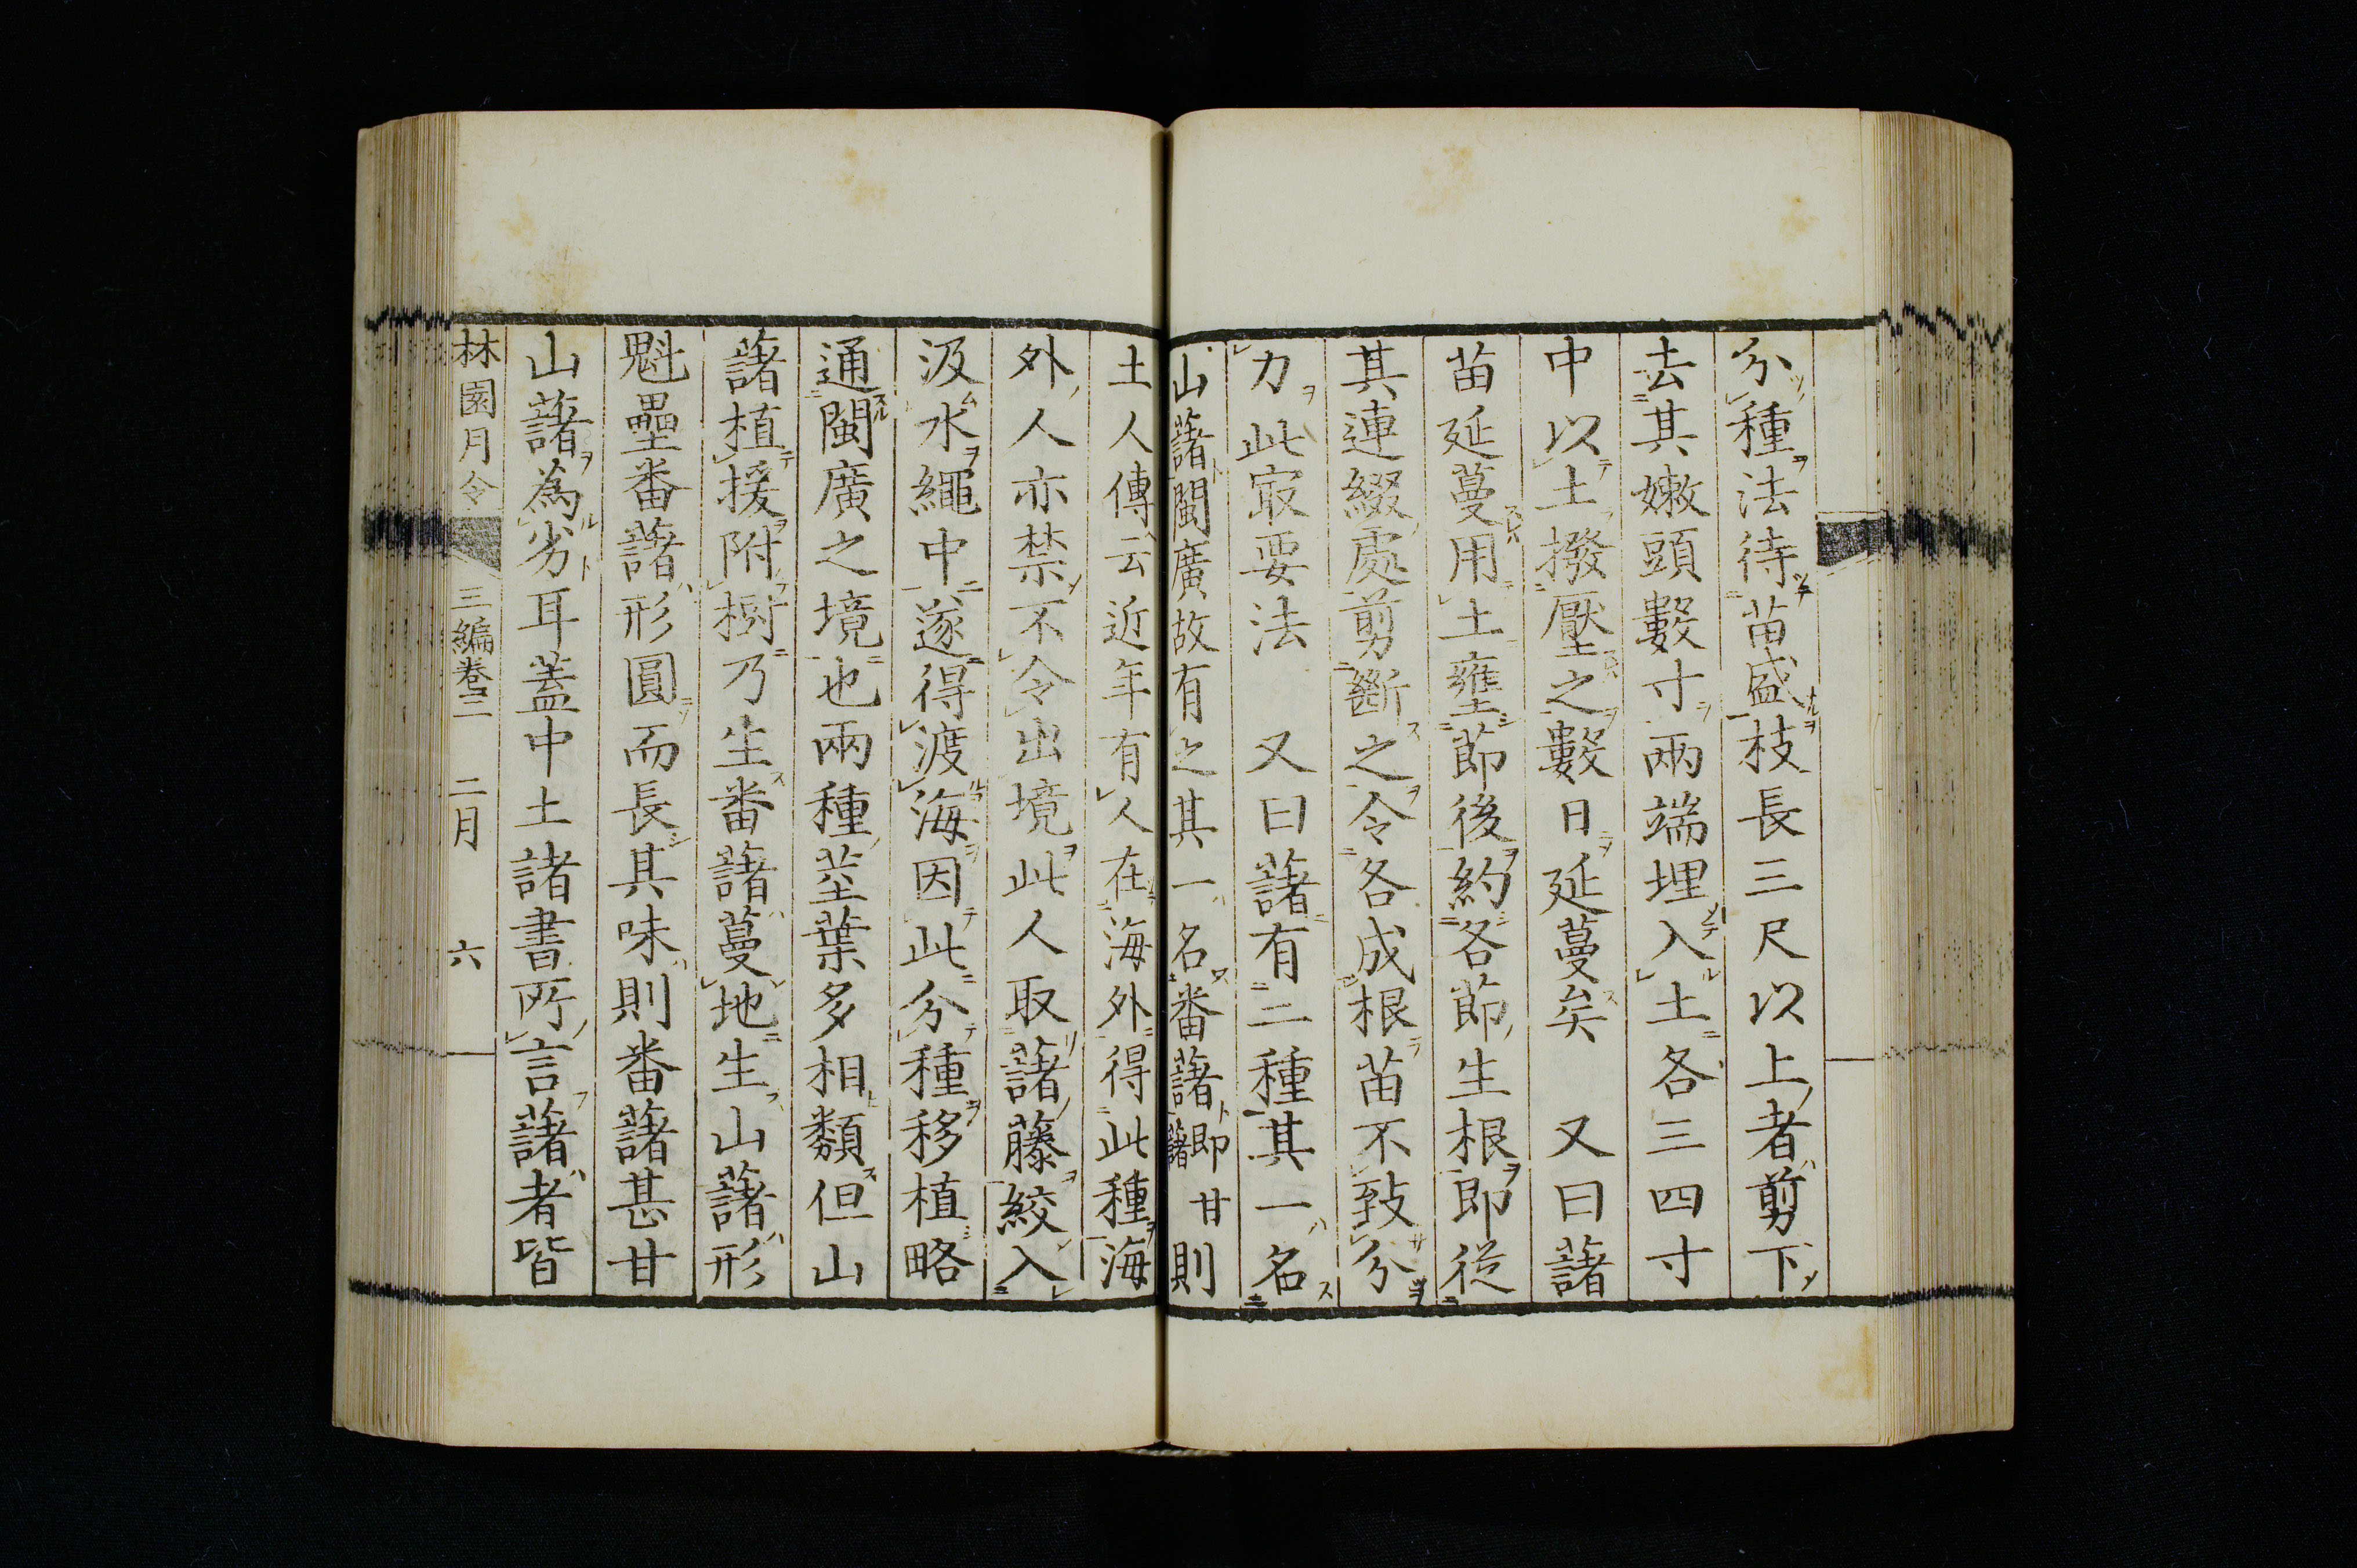 分種法待苗盛枝長三尺以上者剪下
去其嫩頭數寸兩端埋入土各三四寸
中以土撥壓之數日延蔓矣　又曰藷
苗延蔓用土壅節後約各節生根即從
其連綴處剪斷之令各成根苗不致分
力此㝡要法　又曰藷有二種其一名
山藷閩廣故有之其一名番藷即甘藷則
土人傳云近年有人在海外得此種海
外人亦禁不令出境此人取藷藤絞入
汲水繩中遂得渡海因此分種移植略
通閩廣之境也兩種莖葉多相類但山
藷植援附樹乃生番藷蔓地生山藷形
魁壘番藷形圓而長其味則番藷甚甘
山藷為劣耳蓋中土諸書所言藷者皆
林園月令　三編卷二　二月　六